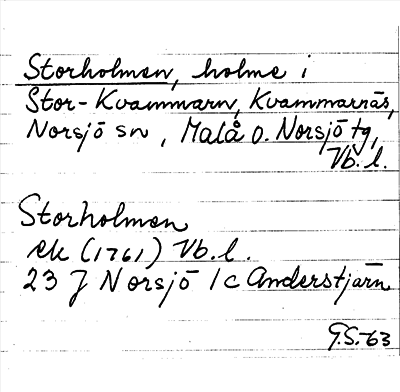 Storholmen, holme i
Stor-Kvammarn, Kvammarnäs,
Norsjö sn, Malå o. Norsjö tg,
Vb. l.
Storholmen
ek (1761) Vb. l.
23 J Norsjö 1c Anderstjärn
G.S.-63